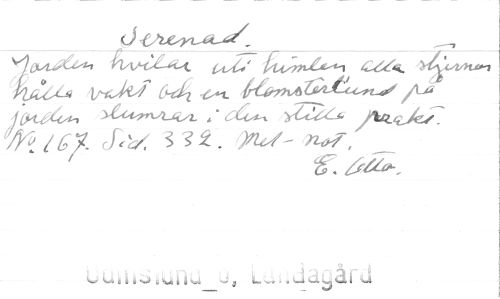 Serenad.
Jorden hvilar uti himlen alla stjernor
hålla vakt och en blomsterlund på
jorden slumrar i den stilla prakt.
No. 167. Sid. 332. Mel-not.
E. Otto.
Landagård